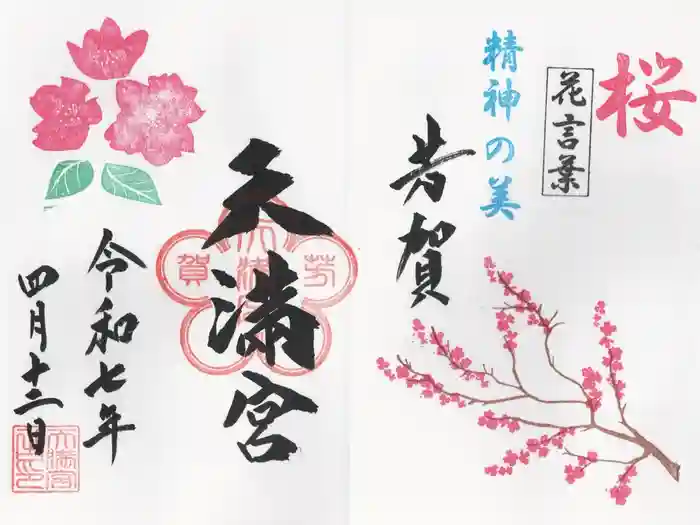 桜
花言葉
精神の美
芳賀
天満宮
芳
賀
令和七年
四月十二日